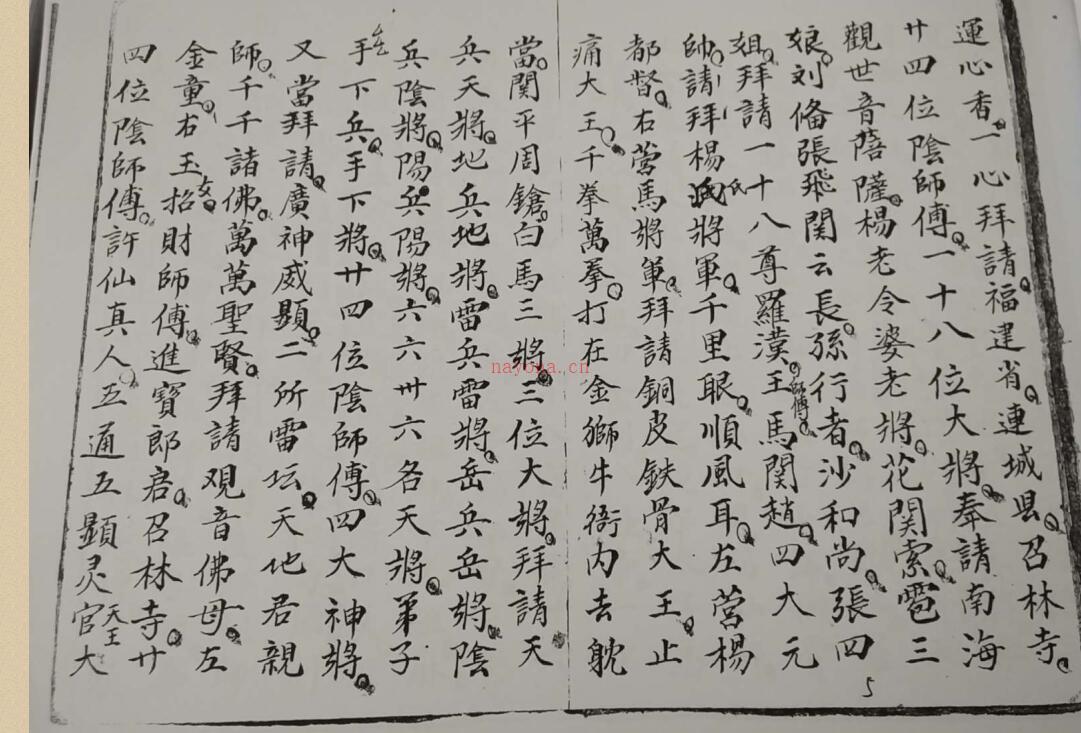 運心香。一心拜請。福建省。連城县。召林寺。
廿四位陰師傅。一十八位大將。奉請南海
觀世音菩薩。楊老令婆老將。花関索。鲍三
娘。刘俻張飛関云長。孫行者。沙和尚。張四
姐。拜請一十八尊羅漢。師傅。王馬関趙。四大元
帥。請拜楊氏將軍。千里眼。順風耳。左营楊
都督。右营馬將軍。拜請銅皮鉄骨大王。止
痛大王。千拳萬拳。打在金獅牛衙内去躭
當。関平周鎗。白馬三將。三位大將。拜請天
兵天將。地兵地將。雷兵雷將。岳兵岳將。陰
兵陰將。陽兵陽將。六六卅六各天將。弟子
手下兵。手下將。廿四位陰師傅。四大神將。
又當拜請。廣神威顯。二所雷坛。天地君親
師。千千諸佛。萬萬聖賢。拜請观音佛母。左
金童。右玉女。招財師傅。進寶郎君。召林寺。廿
四位陰師傅。許仙真人。五通五顯灵官天王大
5
nayona.cn